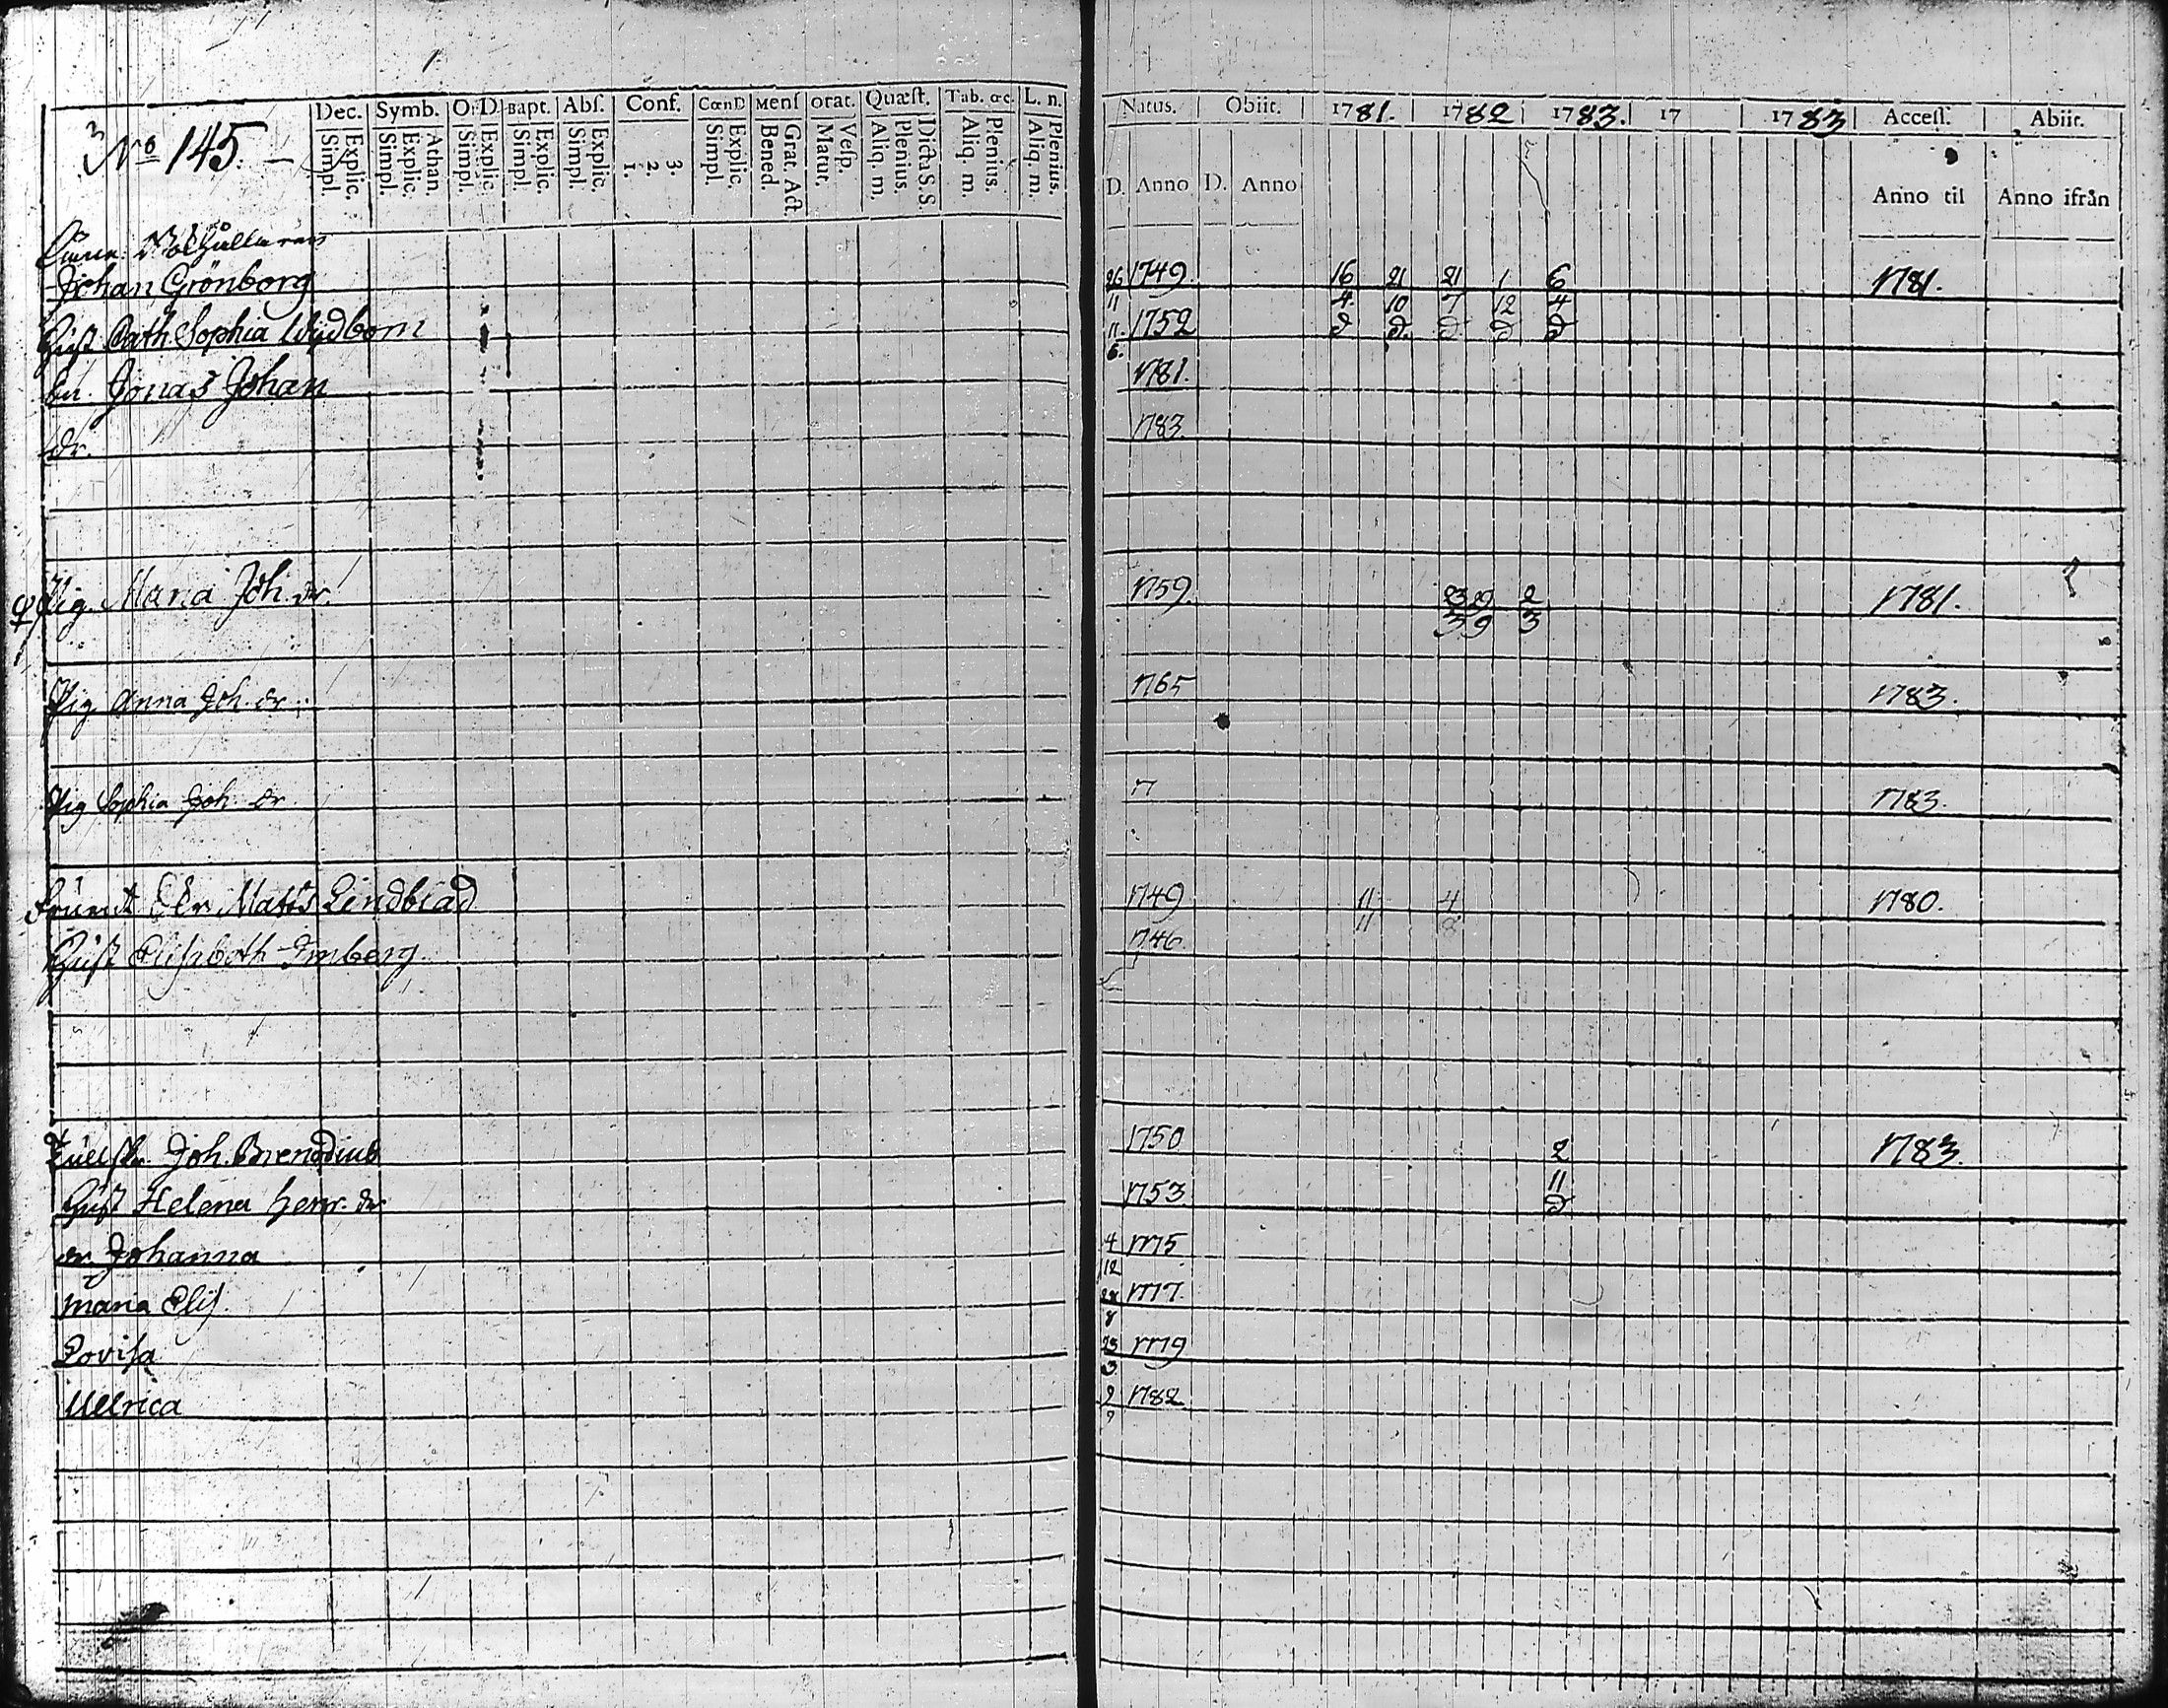 Dec. Symb. O: D Bapt. Abſ. Conf. CœnD Menſ orat. Quæſt. Tab. œc. L. n. Natus. Obiit. 1781. 1782 1783. 17 1783 Acceſſ. Abiit.
3 No 145. —
Simpl. Explic. Simpl. Explic. Athan. Simpl. Explic. Simpl. Explic. Simpl. Explic. 1. 2. 3. Simpl. Explic. Bened. Grat. Act. Matut. Veſp. Aliq. m. Plenius. Dicta S. S. Aliq. m. Plenius. Aliq. m. Plenius. D. Anno D. Anno Anno til Anno ifrån
Johan Grönborg 26 11 1749. 16 4 21 10 21 7 1 12 6 4 1781.
Hust Cath. Sophia Wydbom 11. 6. 1752 D D. D D D
Jonas Johan 1781.
dr. 1783.
Pig. Maria Joh. dr. 1759. 23 3 29 9 2 3 1781.
Pig Anna Joh. dr. 1765 1783.
Pig Sophia Joh. dr. 17 1783.
Matts Lindblad 1749 11 11 4 8 1780.
Hust Elisabeth Imberg. 1746
Joh. Brenodius 1750 2 11 1783.
Hust Helena Henr. dr 1753 D
dr. Johanna 4 12 1775
Maria Elis. 28 8 1777.
Lovisa 23 3 1779
Ullrica 2 9 1782.